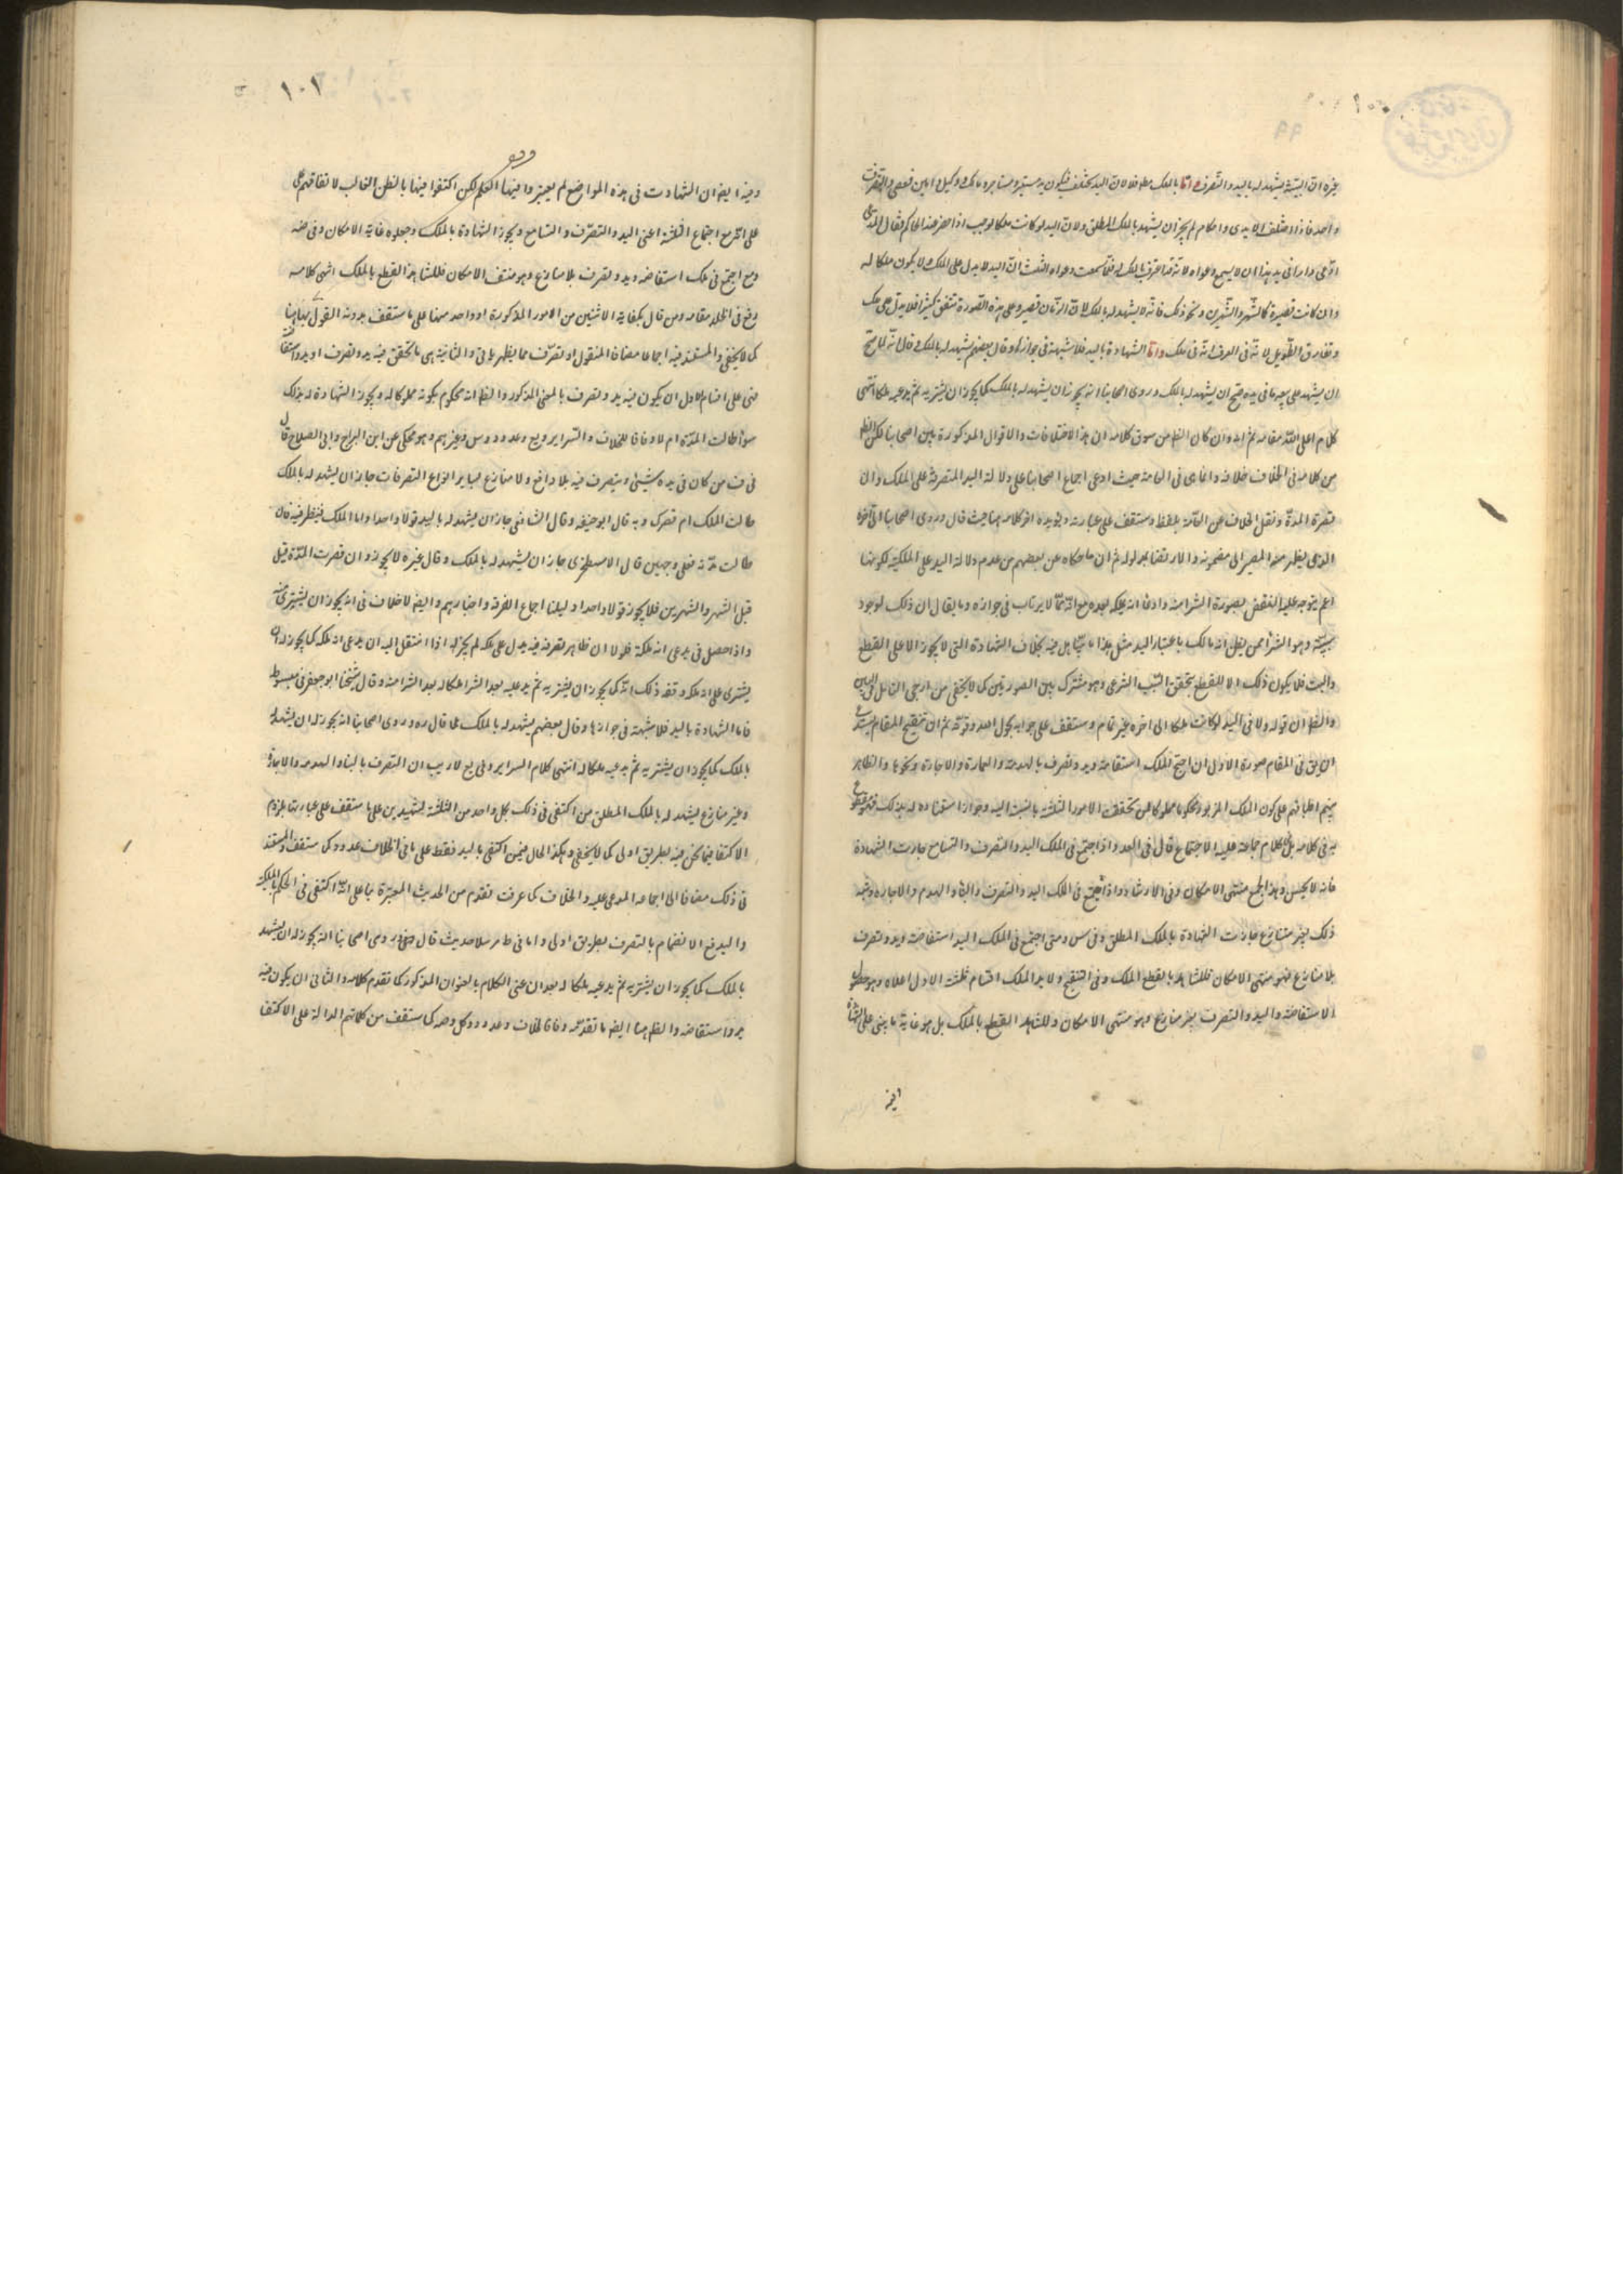 غيره ان البينة يشهد له باليد والتصرف واما بالملك مط فلا لان اليد تختلف فيكون يد مستعير ومستاجر ومالك ووكيل وامين ووصي والتصرف
واحد فاذا اختلف الايدي واحكام لم يجز ان يشهد بالملك المطلق ولان اليد لو كانت ملكا لوجب اذا حضر عند الحاكم فقال المدعي
ادعي دارا في يد هذا ان لا يسمع دعواه لانه قد اعترف بالملك له فلما سمعت دعواه الثلث ان اليد لا يدل على الملك ولا يكون ملكا له
وان كانت قصيرة كالشهر والشهرين ونحو ذلك فانه لا يشهد له بالملك لان الزمان قصير وعلى هذه الصورة تتفق كثيرا فلا يدل على ملك
ويفارق الطويل لانه في العرف انه في ملك واما الشهادة باليد فلا شبهة في جوازه وقال بعضهم يشهد له بالملك وقال انه لما صح
ان يشهد على بيعه ما في يده صح ان يشهد له بالملك وروى اصحابنا انه يجوز ان يشهد له بالملك كما يجوز ان يشتريه ثم يدعيه ملكا انتهى
كلام اعلى الله مقامه ثم انه وان كان الظ من سوق كلامه ان هذا الاختلافات والاقوال المذكورة بين اصحابنا لكن الظ
من كلامه في الخلاف خلافه وانما هي في العامة حيث ادعى اجماع اصحابنا على دلالة اليد المتصرفة على الملك وان
قصرة المدة ونقل الخلاف عن العامة بلفظ وستقف على عبارته ويؤيده اخر كلامه هنا حيث قال وروى اصحابنا الى اخره
الذي يظهر منه المصير الى مضمونه والارتضا بمدلوله ثم ان ما حكاه عن بعضهم من عدم دلالة اليد على الملكية لكونها
اعم يتوجه عليه النقض بصورة الشرا منه وادعا انه ملكه بعده مع انه مما لا يرتاب في جوازه وما يقال ان ذلك لوجود
سببه وهو الشرا ممن يظن انه مالك باعتبار اليد مثل هذا ما يتساهل فيه بخلاف الشهادة التي لا يجوز الا على القطع
والبت فلا يكون ذلك الا للقطع بتحقق السبب الشرعي وهو مشترك بين الصورتين كما لا يخفى من ارجى التامل في البين
والظ ان قوله ولا في اليد لو كانت ملكا الى اخره غير تام وستقف على جوابه بحول الله وقوته ثم ان تنقيح المقام يستدعي
ان يق في المقام صورة الاول ان اجتمع الملك استفاضة ويد وتصرف بالهدم والعمارة والاجارة ونحوها والظاهر
منهم اطباقهم على كون الملك المزبور محكوما مملوكا لمن تحققت الامور الثلثة بالنسبة اليه وجواز استناده له بذلك
ير في كلامه بل كلام جماعة عليه الاجتماع قال في العد واذا اجتمع في الملك اليد والتصرف والتسامع جازت الشهادة
فانه لا يحس وهذا الجمع منتهى الامكان وفي الارشاد واذا اجتمع في الملك اليد والتصرف والبنا والهدم والاجارة وشبه
ذلك بغير متنازع جازت الشهادة بالملك المطلق وفي س ومتى اجتمع في الملك اليد استفاضة ويد وتصرف
بلا منازع فهو منتهى الامكان فللشاهد بالقطع الملك وفي التنقيح ولا يد الملك اقسام ثلثة الاول اعلاه وهو حصول
الاستفاضة واليد والتصرف بغير منازع وهو منتهى الامكان وللشاهد القطع بالملك بل هو غاية ما يبنى على الشهادة
ايضه
١٠١
وفيه ايضه ان الشهادت في هذه المواضع لم يعتبروا فيها العلم لكن اكتفوا فيها بالظن الغالب لاتفاقهم
على انه مع اجتماع الثلثة اعني اليد والتصرف والتسامع ويجوز الشهادة بالملك وجعلوه غاية الامكان وفي ضه
ومع اجتمع في ملك استفاضه ويد وتصرف بلا منازع وهو منتف الامكان فللشاهد القطع بالملك انتهى كلامه
رفع في الخلد مقامه ومن قال بكفاية الاثنين من الامور المذكورة او واحد منها على ما ستقف بدونه القول بها هنا
كما لا يخفى والمستند فيه اجماعا مضافا المنقول او تصرف مما يظهر ياتي والثانية هى ما تحقق فيه يد وتصرف او يد واستفا
ضه على اقسام الاول ان يكون فيه يد وتصرف بالمعنى المذكور والظ انه محكوم بكونه مملوكا له ويجوز الشهادة له بذلك
سوا طالت المدة ام لا وفاقا للخلاف والسراير ويع وعد ود وس وغيرهم وهو محكي عن ابن البراج وابي الصلاح قال
في ف من كان في يده شيئى ويتصرف فيه بلا دافع ولا منازع بساير انواع التصرفات جاز ان يشهد له بالملك
طالت الملك ام قصرت وبه قال ابو حنيفه وقال الشافعي جاز ان يشهد له باليد قولا واحدا واما الملك فينظر فيه فان
طالت مدته فعلى وجهين قال الاسطخري جاز ان يشهد له بالملك وقال غيره لا يجوز وان قصرت المدة قيل
قبل الشهر والشهرين فلا يجوز قولا واحدا دليلنا اجماع الفرقة واخبارهم وايضه لا خلاف في انه يجوز ان يشترى منه
واذا حصل في يدعى انه ملكه فلولا ان ظاهر تصرفه فيه يدل على ملكه لم يجز له اذا انتقل اليه ان يدعى انه ملكه كما يجوز له ان
يشترى على انه ملكه وقضه ذلك انه كما يجوز ان يشتريه ثم يدعيه بعد الشرا ملكا له بعد الشرا منه وقال شيخنا ابو جعفر في مبسوط
فاما الشهادة باليد فلا شبهة في جوازها وقال بعضهم يشهد له بالملك كما قال ره وروى اصحابنا انه يجوز له ان يشهد له
بالملك كما يجوز ان يشتريه ثم يدعيه ملكا له انتهى كلام السراير وفي يع لا ريب ان التصرف بالبنا والهدم والاجارة
وغير منازع يشهد له بالملك المطلق من اكتفى في ذلك بكل واحد من الثلثة كشهيدين على ما ستقف على عبارتها يلزم
الاكتفا فيما نحن فيه بطريق اولى كما لا يخفى وهكذا الحال فيمن اكتفى باليد فقط على ما في الخلاف عد ود كما ستقف والمستند
في ذلك مضافا الى اجماعه المدعى عليه والخلاف كما عرفت تقدم من الحديث المعتبرة بنا على انه اكتفى في الحكم بالملكية
واليد مع الانضمام بالتصرف بطريق اولى واما في ط مرسلا حديث قال روى اصحابنا انه يجوز له ان يشهد
بالملك كما يجوز ان يشتريه ثم يدعيه ملكا له بعد ان عنى الكلام بالعنوان المذكور كما تقدم كلامه والثاني ان يكون فيه
يد واستفاضه والظ هنا ايضه ما تقدم وفاقا للخلاف وعد ود وكل وضه كما ستقف من كلماتهم الدالة على الاكتفا